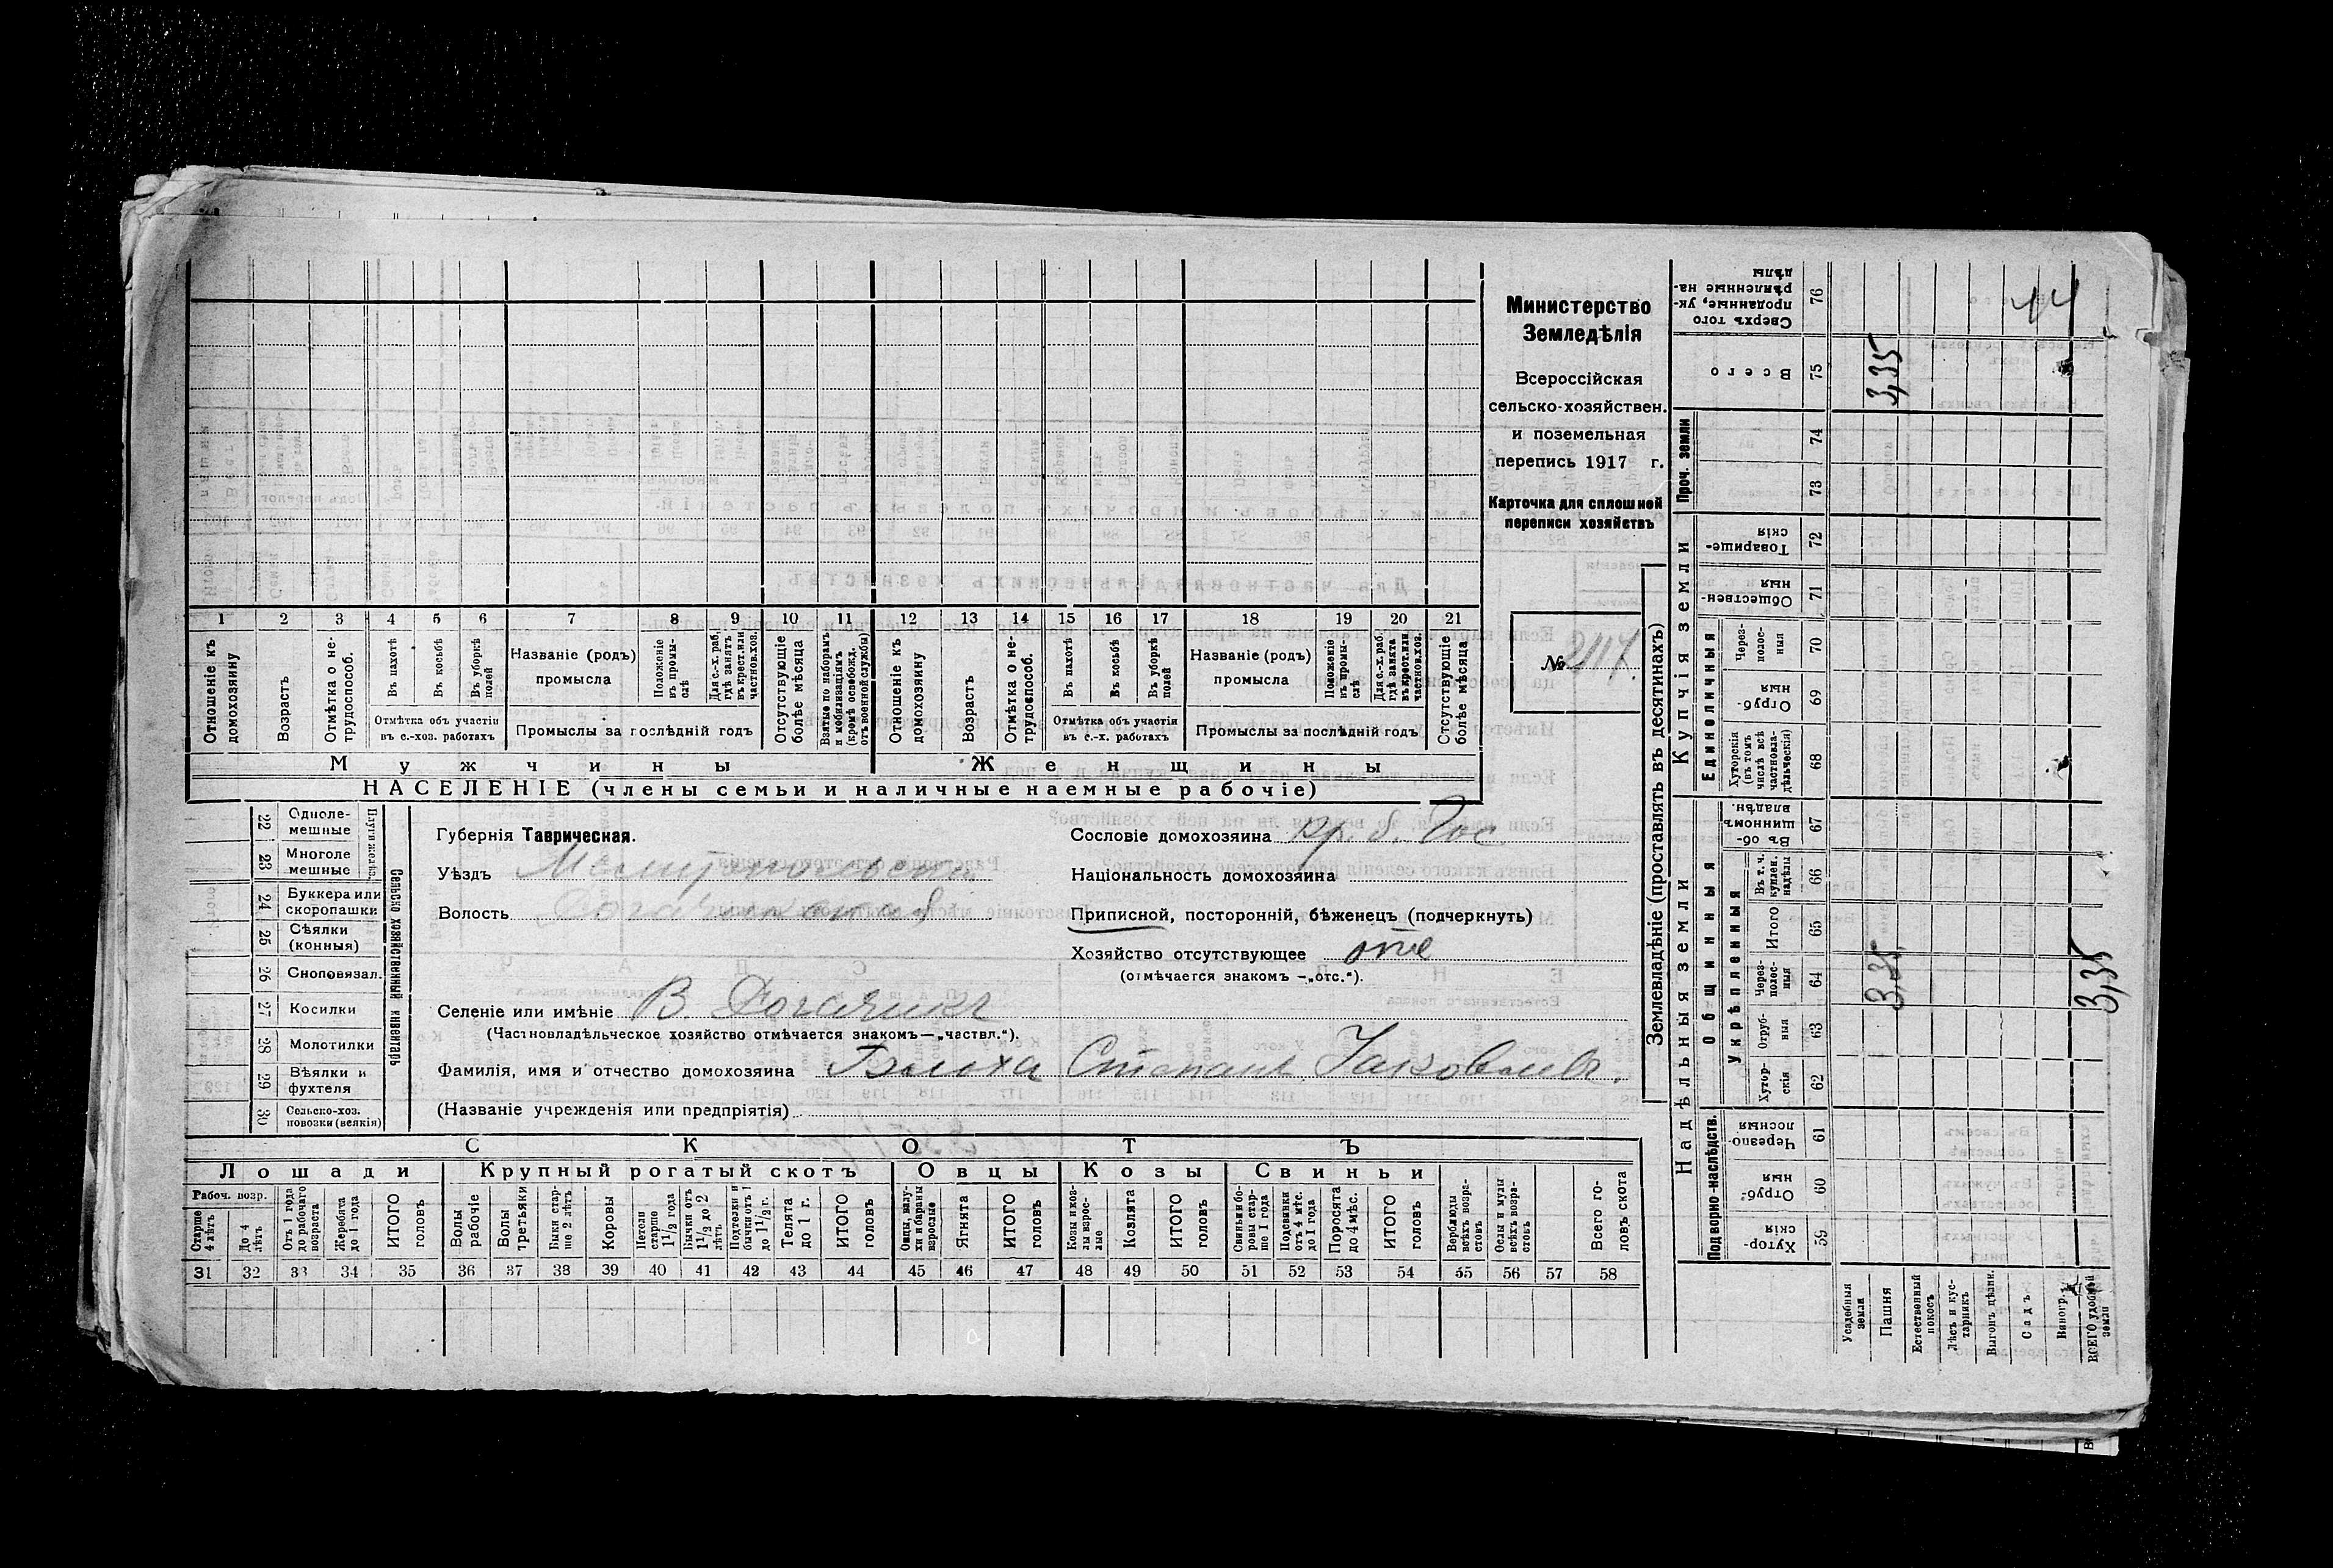 Министерство
Земледѣлія
Всероссійская
сельско-хозяйствен.
и поземельная
перепись 1917 г.
Карточка для сплошной
переписи хозяйствъ
№ 2117.
44
1 2 3 4 5 6 7 8 9 10 11 12 13 14 15 16 17 18 19 20 21
Отношеніе къ домохозяину
Возрастъ
Отмѣтка о не-трудоспособ.
Въ пахотѣ
Въ косьбѣ
Въ уборкѣ полей
Отмѣтка объ участіи въ с.-хоз. работахъ
Названіе (родъ) промысла
Положеніе въ промы-слѣ
Для с.-х. раб. гдѣ занятъ въ крест. или частнов. хоз.
Промыслы за послѣдній годъ
Отсутствующіе болѣе мѣсяца
Взятые по наборамъ и мобилизаціямъ (кромѣ освобожд. отъ военной службы)
Отношеніе къ домохозяину
Возрастъ
Отмѣтка о не-трудоспособ.
Въ пахотѣ
Въ косьбѣ
Въ уборкѣ полей
Отмѣтка объ участіи въ с.-х. работахъ
Названіе (родъ) промысла
Положеніе въ промы-слѣ
Для с.-х. раб. гдѣ занята въ крест. или частнов. хоз.
Промыслы за послѣдній годъ
Отсутствующіе болѣе мѣсяца
Мужчины Женщины
НАСЕЛЕНІЕ (члены семьи и наличные наемные рабочіе)
22 Однолемешные
23 Многолемешные
Плуги желѣз.
24 Буккера или скоропашки
25 Сѣялки (конныя)
26 Сноповязал.
27 Косилки
28 Молотилки
29 Вѣялки и фухтеля
30 Сельско-хоз. повозки (всякія)
Сельско хозяйственный инвентарь
Губернія Таврическая.
Уѣздъ Мелитопольскій
Волость
Сословіе домохозяина кр. б. Гос
Національность домохозяина
Приписной, посторонній, бѣженецъ (подчеркнуть)
Хозяйство отсутствующее отс
(отмѣчается знакомъ —„отс.“).
Селеніе или имѣніе В Рогачикъ
(Частновладѣльческое хозяйство отмѣчается знакомъ—„частвл.“).
Фамилія, имя и отчество домохозяина Блоха Степанъ Яковлевъ.
(Названіе учрежденія или предпріятія)
СКОТЪ
Лошади Крупный рогатый скотъ Овцы Козы Свиньи
Рабоч. возр.
Старше 4 лѣтъ
До 4 лѣтъ
Отъ 1 года до рабочаго возраста
Жеребята до 1 года
ИТОГО головъ
Волы рабочіе
Волы третьяки
Быки стар-ше 2 лѣтъ
Коровы
Нетели старше 1½ года
Бычки отъ 1½ до 2 лѣтъ
Подтелки и бычки отъ 1 до 1½ г.
Телята до 1 г.
ИТОГО головъ
Овцы, валу-хи и бараны взрослые
Ягнята
ИТОГО головъ
Козы и коз-лы взрос-лые
Козлята
ИТОГО головъ
Свиньи бо-ровы стар-ше 1 года
Подсвинки отъ 4 мѣс. до 1 года
Поросята до 4 мѣс.
ИТОГО головъ
Верблюды всѣхъ возра-стовъ
Ослы и мулы всѣхъ возра-стовъ
Всего го-ловъ скота
31 32 33 34 35 36 37 38 39 40 41 42 43 44 45 46 47 48 49 50 51 52 53 54 55 56 57 58
Землевладѣніе (проставлять въ десятинахъ)
Надѣльныя земли Купчія земли Проч. земли
Подворно-наслѣдств. Общинныя Единоличныя
Укрѣпленныя
59 Хутор-скія
60 Отруб-ныя
61 Черезпо-лосныя
62 Хутор-скія
63 Отруб-ныя
64 Черезпо-лосныя
65 Итого
66 Въ т. ч. куплен. надѣлы
67 Въ об-щинномъ владѣн.
68 Хуторскія (въ томъ числѣ всѣ частновла-дѣльческія)
69 Отруб-ныя
70 Черезпо-лосныя
71 Обществен-ныя
72 Товарище-скія
73
74
75 Всего
76 Сверхъ того проданные, ук-рѣпленные на-дѣлы
Усадебныя земли
Пашня 3,35 3,35
Естественный покосъ
Лѣсъ и кус-тарникъ
Выгонъ цѣлин.
Садъ
Виногр.
ВСЕГО удобной земли 3,35